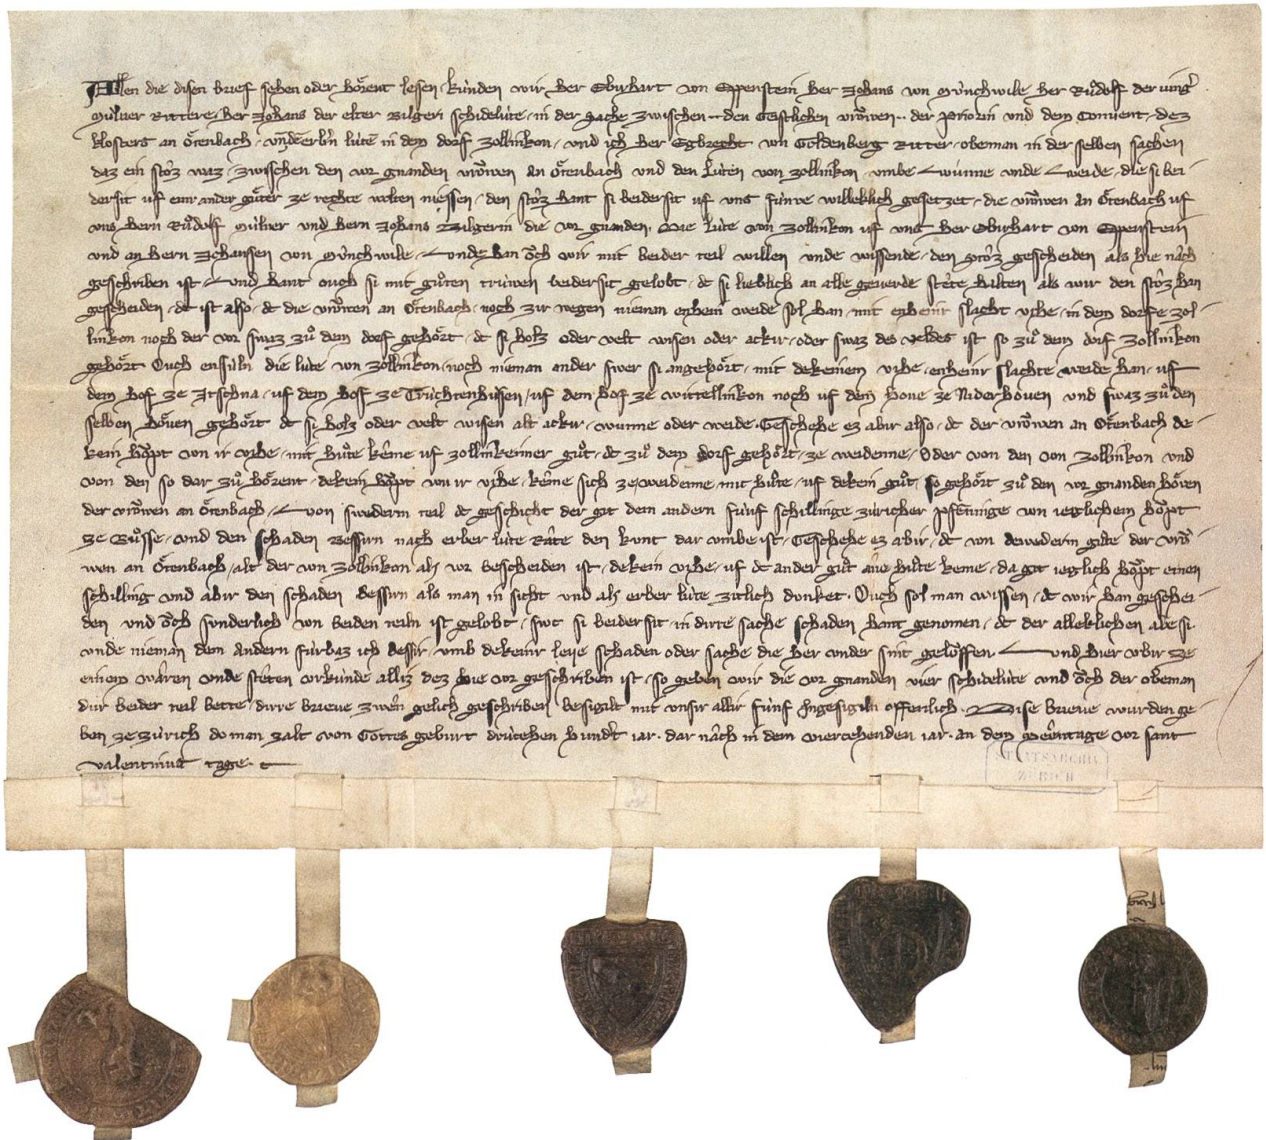 Allen die disen brief sehen oder hörent lesen künden wir her Eburhart von Eppenstein her Johans von Münchwile her Růdolf der iung
Mülner Rittere her Johans der elter Bilgeri schidelúte in der sache zwischen den Geistlichen vröwen der Priorin und dem Convent dez
klosters an Ötenbach und den erbn lúten in dem dorf Zollinkon und ich her Egbrecht von Goldenberg Ritter obeman in der selben sachen
daz ein stöz waz zwisschen den vor gnanden vröwen an Ötenbach und den Lúten von Zollinkon umbe Wunne unde Weide die si bei
dersit uf einr ander gůter ze rechte wolten niessen den stöz hant si beidersit uf uns fúnve willeklich gesetzet die vröwen an Ötenbach uf
uns hern Růdolf Mülner und hern Johans Bilgerin die vor gnanden Die lúte von Zollinkon uf uns her Eburhart von Eppenstein
und an hern Johansen von Münchwile unde han öch wir mit beider teil willen unde wissende den stöz gescheiden als hie nach
geschriben ist Und hant ouch si mit gůten trúwen beidersit gelobt dc si lieblich an alle geverde stete halten als wir den stöz han
gescheiden dc ist also dc die vröwen an Ötenbach noch zir wegen nieman enhein weide sol han mit enheinr slacht vihe in dem dorfe Zol
linkon noch der vor swaz zů dem dorf gehört dc si holz oder velt wisen oder ackir oder swaz des veldes ist so zů dem dorf Zollinkon
gehört Ouch ensúln die lúte von Zollinkon noch nieman ander swer si angehört mit dekeinem vihe enheinr slachte weide han uf
dem hof ze Itschna uf dem hof ze Trúchtenhusen uf dem hof ze Wittellinkon noch uf dem hove ze Niderhoven und swaz zů den
selben höven gehört dc si holz oder velt wisen alt ackir wunne oder weide Geschehe ez abir also dc der vröwen an Ötenbach de
kein höpt von ir vihe mit hůte keme uf Zollinkeiner gůt dc zů dem dorf gehört ze weidenne Oder von den von Zollinkon und
von den so dar zů hörent dekein höpt von ir vihe keme sich ze weidenne mit hůte uf dekein gůt so gehört zů den vor gnanden höven
der vröwen an Ötenbach von swederm teil dc geschicht der git dem andern fúnf schillinge züricher pfenninge von ieglichem höpt
ze Bůsse und den schaden bessirn nach erber lúte Rate den kunt dar umbe ist Geschehe ez abir dc von dewederm gůte der vrö
wen an Ötenbach alt der von Zollinkon als vor bescheiden ist dekein vihe uf dc ander gůt ane hůte keme da git ieglich höpt einen
schilling und abir den schaden bessirn als man in sicht und als erber lúte zitlich dunket Ouch sol man wissen dc wir han geschei
den und öch sunderlich von beiden teiln ist gelobt swc si beidersit in dirre sache schaden hant genomen dc der alleklichen abe si
unde nieman dem andern fúrbaz ich bessir umb dekeinr leye schaden oder sache die her under sint gelöffen Und hier ubir ze
einem waren unde steten urkúnde alliz dez hie vor geschriben ist so geben wir die vor gnanden vier schidelúte und öch der obeman
dur beider teil bette dirre brieve zwen gelich geschriben besigalt mit unsir allir fúnf Ingesigiln offenlich Dise brieve wurden ge
ben ze Zúrich do man zalt von Gottes geburt drúcehen hundert iar dar nach in dem viercehenden iar an dem Mentage vor sant
Valentinus tage
STAATSARCHIV
ZÜRICH